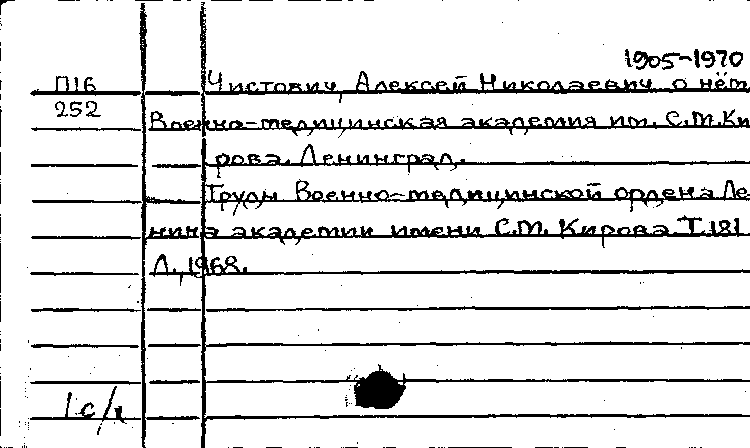 1905-1970
П16 Чистович, Алексей Николаевич о нём
252 Военно-медицинская академия им. С.М.Ки
рова. Ленинград.
Труды Военно-медицинской ордена Ле
нина академии имени С.М. Кирова. Т.181
Л., 1968.
1 с/к